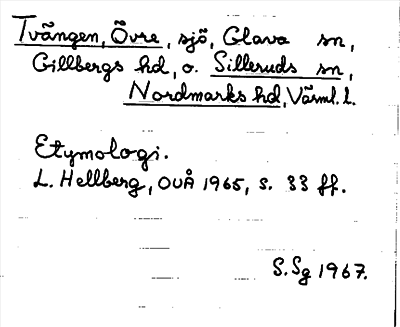 Tvängen, Övre, sjö, Glava sn,
Gillbergs hd, o. Silleruds sn,
Nordmarks hd, Värml. l.
Etymologi.
L. Hellberg, OUÅ 1965, s. 33 ff.
S.Sg 1967.